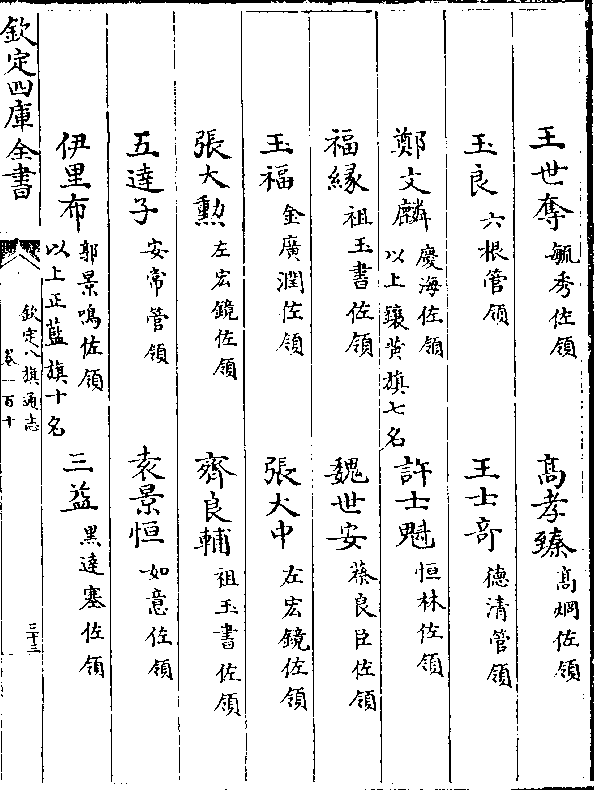 王世奪毓秀佐領　髙孝臻髙炯佐領
玉良六根管領　王士竒德清管領
鄭文麟慶海佐領以上鑲黄旗七名　許士魁恒林佐領
福緣祖玉書佐領　魏世安蔡良臣佐領
玉福金廣潤佐領　張大中左宏鏡佐領
張大勲左宏鏡佐領　齊良輔祖玉書佐領
五達子安常管領　袁景恒如意佐領
伊里布郭景鳴佐領以上正藍旗十名　三益黒達塞佐領
欽定四庫全書
欽定八旗通志
卷一百十
三十三